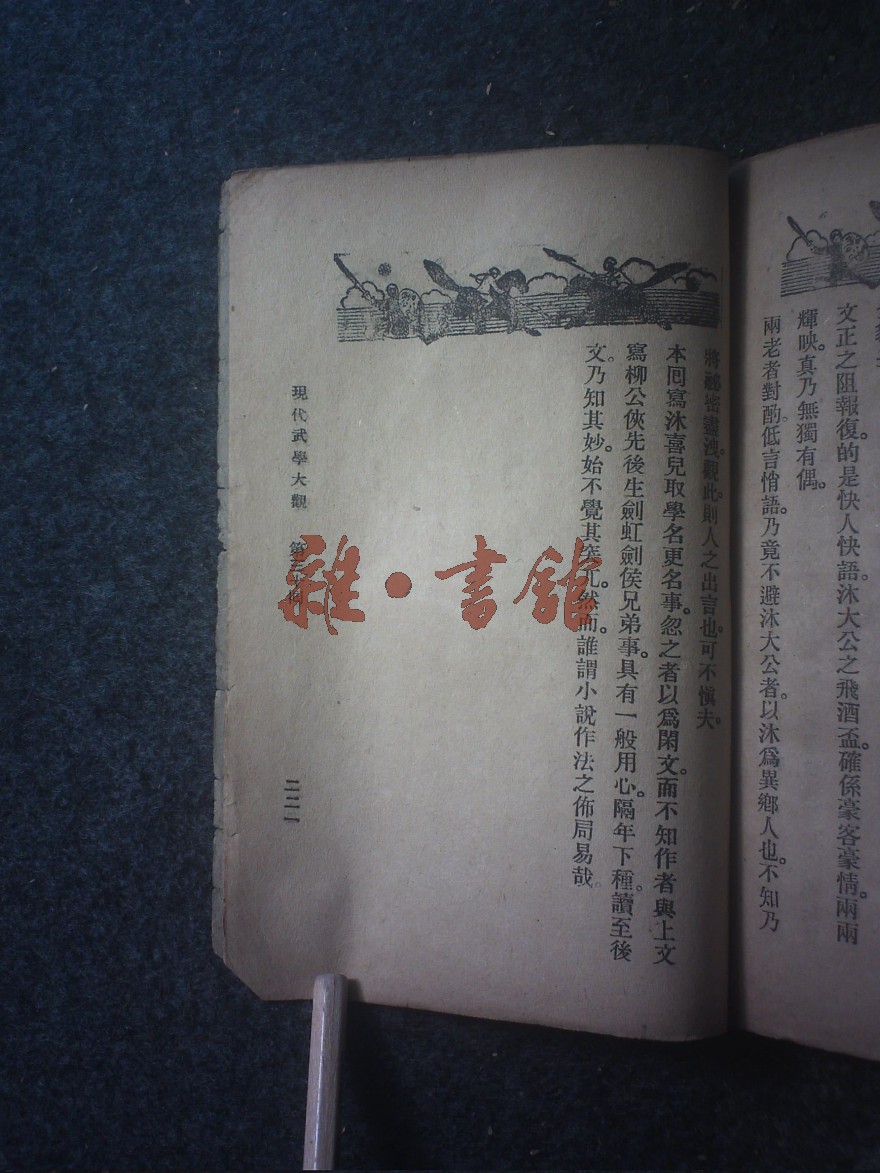 文正之阻報復的是快人快語。沐大公之飛酒盃。確係豪客豪情。兩兩
輝映。真乃無獨有偶。
兩老者對酌。低言悄語。乃竟不避沐大公者。以沐爲異鄉人也。不知乃
將祕密盡洩。觀此。則人之出言也。可不愼夫。
本囘寫沐喜兒取學名更名事。忽之者以爲閑文。而不知作者與上文
寫柳公俠先後生劍虹劍侯兄弟事。具有一般用心。隔年下種。讀至後
文。乃知其妙。始不覺其突兀。然而。誰謂小說作法之佈局易哉。
現代武學大觀 第三十囘 二二一
雜·書館